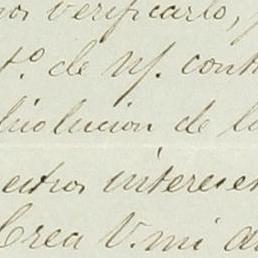 verificarlo,
to. de V. cont
disolucion de l
estros interese
Crea V. mi a